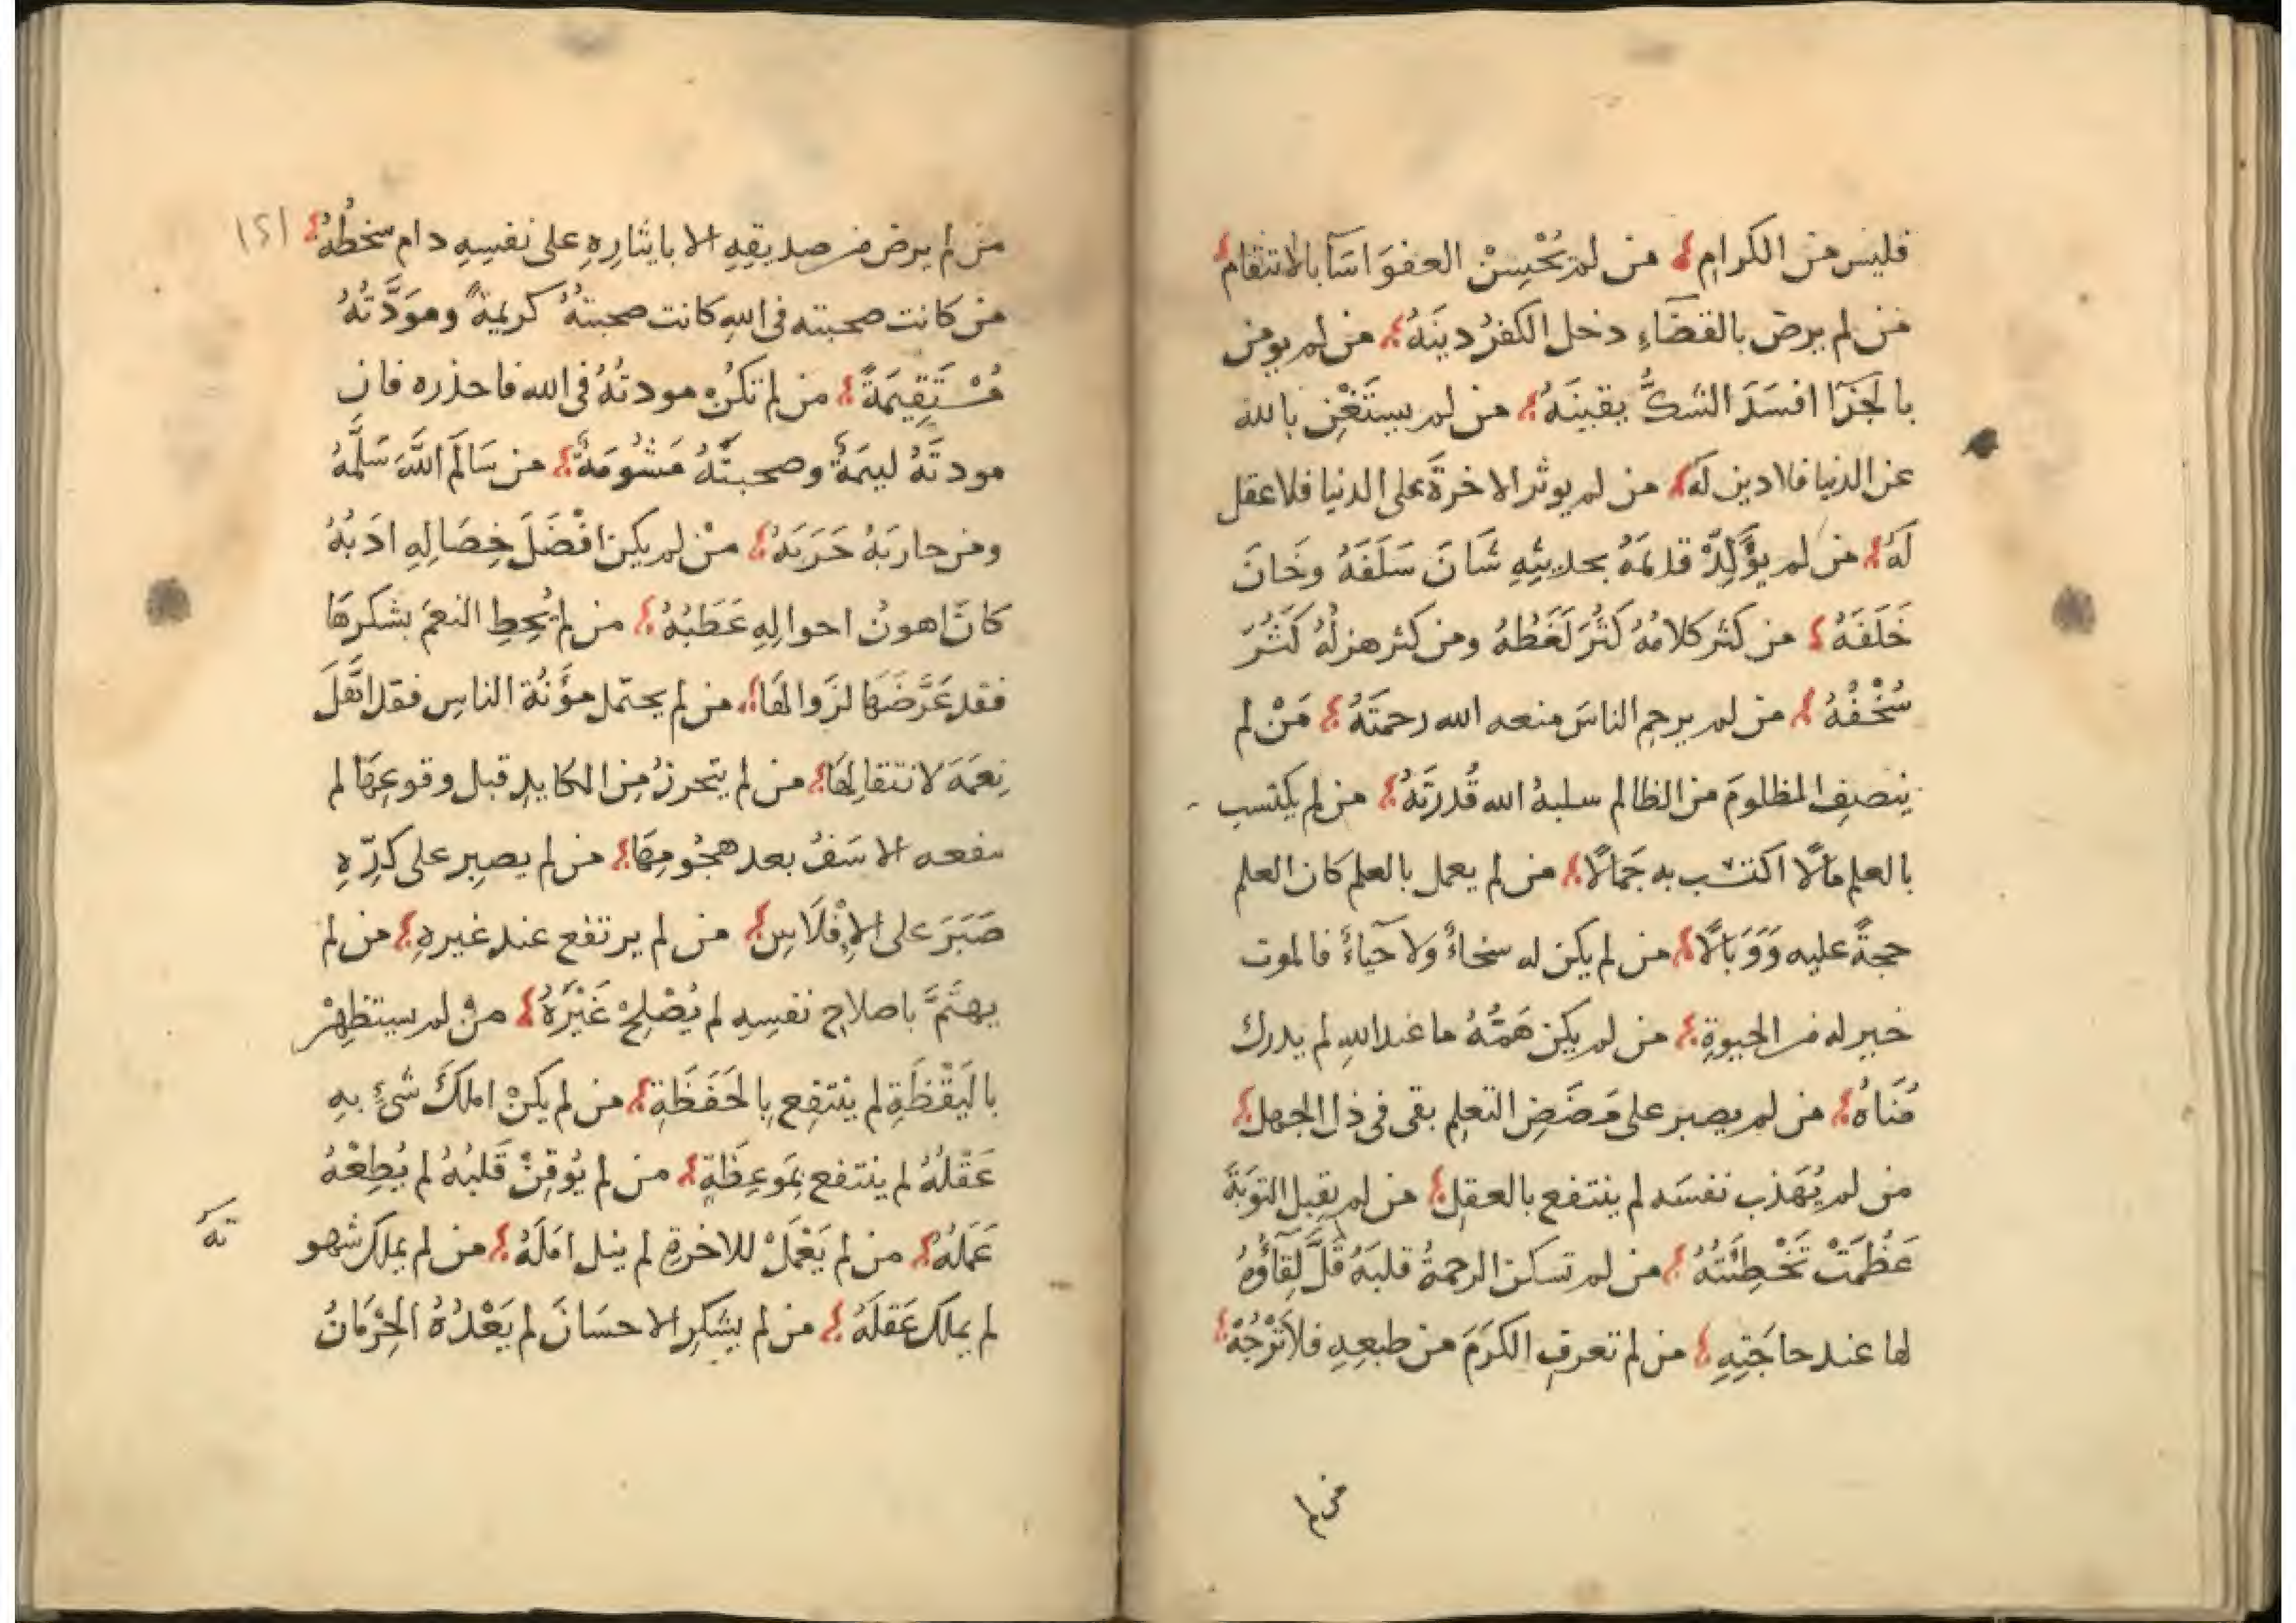 فليس من الكرام من لم يُحْسِنْ العفوَ اسَآ بالانتقام
من لم يرض بالقضَآءِ دخل الكفرُ دينَهُ من لم يومن
بالجَزَآ افسَدَ الشكُّ يقينَهُ من لم يستَغْنِ بالله
عن الدنيا فلا دين لَهُ من لم يوثر الاخرةَ على الدنيا فلا عقل
لَهُ من لم يؤَكِّدْ قديمَهُ بحديثِهِ شَانَ سَلَفَهُ وخَانَ
خَلَفَهُ من كثر كلامُهُ كَثُرَ لَغَطُهُ ومن كثر هزلُهُ كَثُرَ
سُخْفُهُ من لم يرحمِ الناسَ منعه الله رحمتَهُ مَنْ لم
ينصفِ المظلومَ من الظالم سلبهُ الله قُدرتَهُ من لم يكتسب
بالعلمِ مالًا اكتسب به جَمَالًا من لم يعمل بالعلم كان العلم
حجةً عليه وَوَبَالًا من لم يكن له سخاءٌ ولا حَيَاءٌ فالموت
خير له من الحيوةِ من لم يكن هَمُّهُ ما عند اللهِ لم يدرك
مُنَاهُ من لم يصبر على مَضَضِ التعلمِ بقى فى ذل الجهل
من لم يُهَذب نفسَه لم ينتفع بالعقلِ من لم يقبل التوبَةَ
عَظُمَتْ خَطِيْئَتُهُ من لم تسكن الرحمةُ قلبَهُ قَلَّ لِقَآؤُهُ
لها عند حاجَتِهِ من لم تعرفِ الكرَمَ من طبعِهِ فلا تَرْجُهْ
من لم
من لم يرض من صديقِهِ الا بايثارِهِ على نفسِهِ دام سخطُهُ ١٢١
من كانت صحبته فى اللهِ كانت صحبتهُ كريمةً ومَوَدَّتُهُ
مُسْتَقِيمَةً من لم تكنْ مودتُهُ فى الله فاحذره فان
مودتَهُ ليمَةٌ وصحبتَهُ مَشُومَةٌ من سَالَمَ اللَّهَ سَلَّمَهُ
ومن حاربَهُ حَرَبَهُ منْ لم يكن افْضَلَ خِصَالِهِ ادَبُهُ
كانَ اهونُ احوالِهِ عَطَبُهُ من لم يُحِطِ النعمَ بشكرِهَا
فقد عَرَّضَهَا لزَوالهَا من لم يحتمل مؤنَةَ الناسِ فقد اهَّلَ
نِعمَهَ لانتقالِهَا من لم يتحرزْ مِنَ المكايدِ قبل وقوعِهَا لم
ينفعه الاسَفُ بعد هجُومِهَا من لم يصبِر على كَدِّهِ
صَبَرَ على الإِفْلَاسِ من لم يرتفع عند غيرهِ من لم
يهتَمَّ باصلاحِ نفسِهِ لم يُصْلِحْ غَيْرَهُ منْ لم يستظهِرْ
باليَقْظَةِ لم ينتفِع بالحَفَظَةِ من لم يكنْ املَكَ شىءٍ بهِ
عَقْلُهُ لم ينتفع بمَوعِظَةٍ من لم يُوقِنْ قَلبُهُ لم يُطِعْهُ
عَمَلُهُ من لم يَعْمَلْ للاخرةِ لم ينل امَلَهُ من لم يملك شهو
تَهُ
لم يملك عَقلَهُ من لم يشكرِ الاحسَانَ لم يَعْدُهُ الحِرْمَانُ